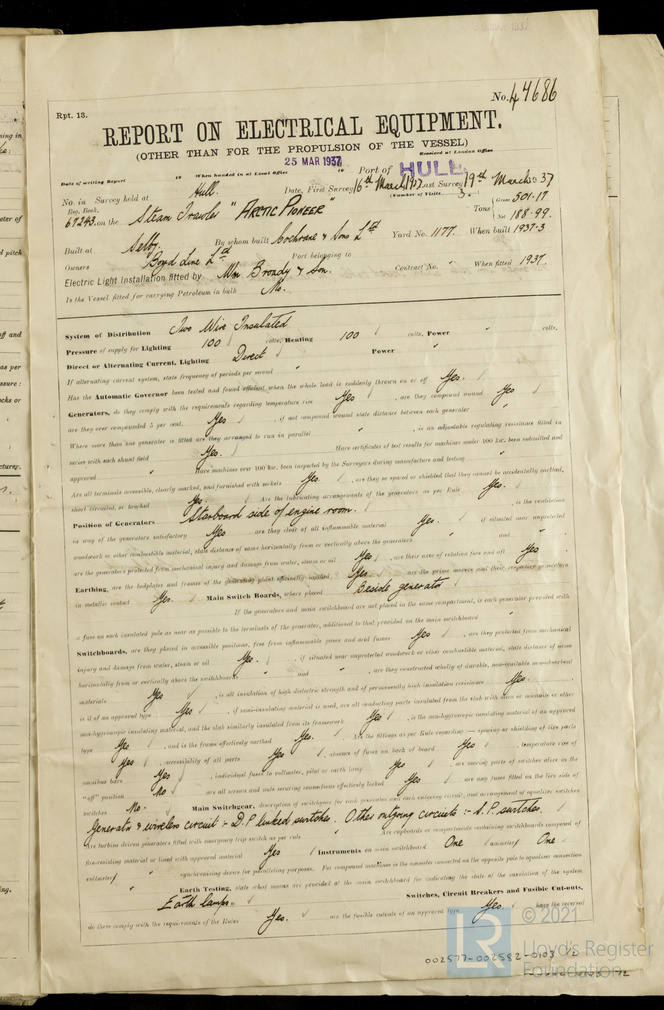 No. 44686
Rpt. 13.
REPORT ON ELECTRICAL EQUIPMENT.
(OTHER THAN FOR THE PROPULSION OF THE VESSEL)
25 MAR 1937
Received at London Office
Date of writing Report 19 When handed in at Local Office 19 Port of HULL
No. in Survey held at Hull. Date, First Survey 16th March 1937 Last Survey 19th March 1937
Reg. Book. (Number of Visits 3.)
67243 on the Steam Trawler "ARCTIC PIONEER" Tons Gross 501.17 Net 188.99.
Built at Selby. By whom built Cochrane & Sons Ltd Yard No. 1177. When built 1937-3
Owners Boyd Line Ltd Port belonging to
Electric Light Installation fitted by Wm Broady & Son. Contract No. " When fitted 1937.
Is the Vessel fitted for carrying Petroleum in bulk No.
System of Distribution Two Wire Insulated
Pressure of supply for Lighting 100 volts, Heating 100 volts, Power " volts.
Direct or Alternating Current, Lighting Direct Power "
If alternating current system, state frequency of periods per second "
Has the Automatic Governor been tested and found efficient when the whole load is suddenly thrown on or off Yes.
Generators, do they comply with the requirements regarding temperature rise Yes, are they compound wound Yes
are they over compounded 5 per cent. Yes, if not compound wound state distance between each generator "
Where more than one generator is fitted are they arranged to run in parallel ", is an adjustable regulating resistance fitted in
series with each shunt field Yes. Have certificates of test results for machines under 100 kw. been submitted and
approved " Have machines over 100 kw. been inspected by the Surveyors during manufacture and testing "
Are all terminals accessible, clearly marked, and furnished with sockets Yes, are they so spaced or shielded that they cannot be accidentally earthed,
short circuited, or touched Yes. Are the lubricating arrangements of the generators as per Rule Yes.
Position of Generators Starboard side of engine room.
, is the ventilation
in way of the generators satisfactory Yes are they clear of all inflammable material Yes. if situated near unprotected
woodwork or other combustible material, state distance of same horizontally from or vertically above the generators " and "
are the generators protected from mechanical injury and damage from water, steam or oil Yes, are their axes of rotation fore and aft Yes
Earthing, are the bedplates and frames of the generating plant efficiently earthed Yes are the prime movers and their respective generators
in metallic contact Yes. Main Switch Boards, where placed Beside generator
If the generators and main switchboard are not placed in the same compartment, is each generator provided with
a fuse on each insulated pole as near as possible to the terminals of the generator, additional to that provided on the main switchboard "
Switchboards, are they placed in accessible positions, free from inflammable gases and acid fumes Yes, are they protected from mechanical
injury and damage from water, steam or oil Yes., if situated near unprotected woodwork or other combustible material, state distance of same
horizontally from or vertically above the switchboards " and ", are they constructed wholly of durable, non-ignitable non-absorbent
materials Yes, is all insulation of high dielectric strength and of permanently high insulation resistance Yes.
is it of an approved type Yes, if semi-insulating material is used, are all conducting parts insulated from the slab with mica or micanite or other
non-hygroscopic insulating material, and the slab similarly insulated from its framework Yes, is the non-hygroscopic insulating material of an approved
type Yes, and is the frame effectively earthed Yes. Are the fittings as per Rule regarding:— spacing or shielding of live parts
Yes, accessibility of all parts Yes, absence of fuses on back of board Yes, temperature rise of
omnibus bars Yes, individual fuses to voltmeter, pilot or earth lamp Yes, are moving parts of switches alive in the
"off" position No are all screws and nuts securing connections effectively locked Yes are any fuses fitted on the live side of
switches No. Main Switchgear, description of switchgear for each generator and each outgoing circuit, and arrangement of equaliser switches
Generator & wireless circuit :- D.P. linked switches. Other outgoing circuits :- S.P. switches.
Are turbine driven generators fitted with emergency trip switch as per rule " Are cupboards or compartments containing switchboards composed of
fire-resisting material or lined with approved material Yes Instruments on main switchboard One ammeter One
voltmeter " synchronising device for paralleling purposes. For compound machines is the ammeter connected on the opposite pole to equaliser connection
" Earth Testing, state what means are provided at the main switchboard for indicating the state of the insulation of the system
Earth lamps. Switches, Circuit Breakers and Fusible Cut-outs,
do these comply with the requirements of the Rules Yes. are the fusible cutouts of an approved type Yes. have the reversed
© 2021
LR
Lloyd's Register
Foundation
002577-002582-0103 1/2